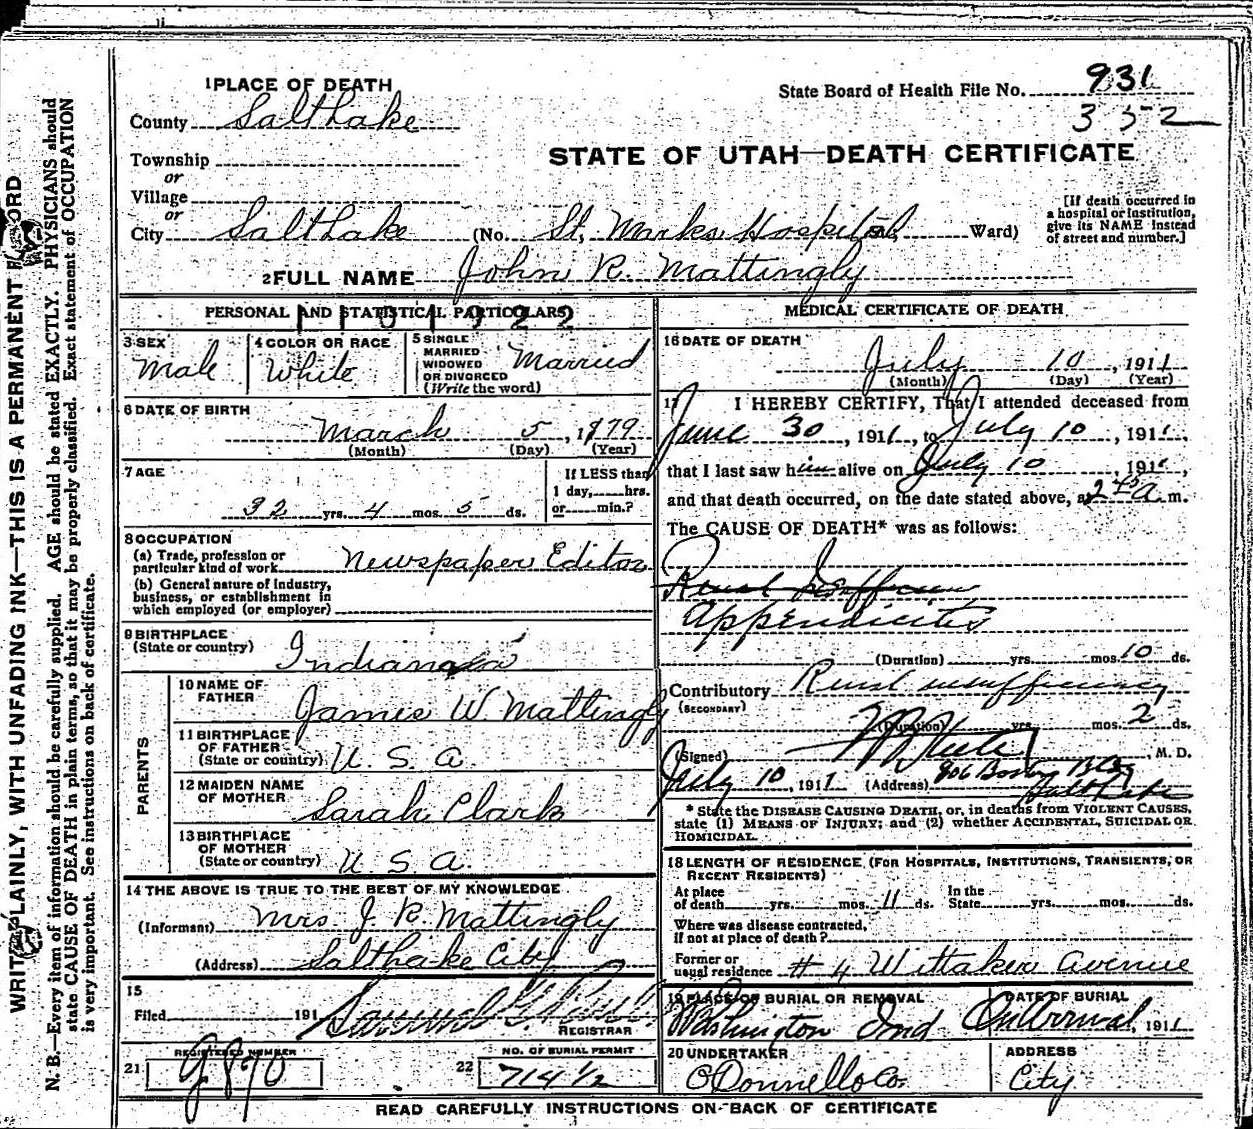 1 PLACE OF DEATH
State Board of Health File No. 931
352
County Salt Lake
STATE OF UTAH—DEATH CERTIFICATE
Township
or
Village
or
City Salt Lake (No. St. Marks Hospital St., Ward)
[If death occurred in
a hospital or institution,
give its NAME instead
of street and number.]
2 FULL NAME John R. Mattingly
PERSONAL AND STATISTICAL PARTICULARS
3 SEX
Male
4 COLOR OR RACE
White
5 SINGLE
MARRIED
WIDOWED
OR DIVORCED
(Write the word)
Married
6 DATE OF BIRTH
March 5, 1879
(Month) (Day) (Year)
7 AGE
32 yrs. 4 mos. 5 ds.
If LESS than
1 day, hrs.
or min.?
8 OCCUPATION
(a) Trade, profession or
particular kind of work Newspaper Editor
(b) General nature of industry,
business, or establishment in
which employed (or employer)
9 BIRTHPLACE
(State or country) Indiana
PARENTS
10 NAME OF
FATHER James W. Mattingly
11 BIRTHPLACE
OF FATHER
(State or country) U. S. A.
12 MAIDEN NAME
OF MOTHER Sarah Clark
13 BIRTHPLACE
OF MOTHER
(State or country) U. S. A.
14 THE ABOVE IS TRUE TO THE BEST OF MY KNOWLEDGE
(Informant) Mrs J. R. Mattingly
(Address) Salt Lake City
15
Filed 191
REGISTRAR
21 REGISTERED NUMBER
G 870
22 NO. OF BURIAL PERMIT
714 1/2
MEDICAL CERTIFICATE OF DEATH
16 DATE OF DEATH
July 10, 1911
(Month) (Day) (Year)
17 I HEREBY CERTIFY, That I attended deceased from
June 30, 1911, to July 10, 1911,
that I last saw him alive on July 10, 1911,
and that death occurred, on the date stated above, at 2 45 a m.
The CAUSE OF DEATH* was as follows:
Appendicitis
(Duration) yrs. mos. 10 ds.
Contributory Renal insufficiency
(SECONDARY)
(Duration) yrs. mos. 2 ds.
(Signed) M. D.
July 10, 1911 (Address) 906 Boston Bldg
Salt Lake
* State the DISEASE CAUSING DEATH, or, in deaths from VIOLENT CAUSES,
state (1) MEANS OF INJURY; and (2) whether ACCIDENTAL, SUICIDAL OR
HOMICIDAL.
18 LENGTH OF RESIDENCE (FOR HOSPITALS, INSTITUTIONS, TRANSIENTS, OR
RECENT RESIDENTS)
At place
of death yrs. mos. 11 ds.
In the
State yrs. mos. ds.
Where was disease contracted,
if not at place of death?
Former or
usual residence # 4 Wittaker Avenue
19 PLACE OF BURIAL OR REMOVAL
Washington Ind
DATE OF BURIAL
1911
20 UNDERTAKER
O'Donnell & Co.
ADDRESS
City
READ CAREFULLY INSTRUCTIONS ON BACK OF CERTIFICATE
WRITE PLAINLY, WITH UNFADING INK—THIS IS A PERMANENT RECORD
N. B.—Every item of information should be carefully supplied. AGE should be stated EXACTLY. PHYSICIANS should
state CAUSE OF DEATH in plain terms, so that it may be properly classified. Exact statement of OCCUPATION
is very important. See instructions on back of certificate.